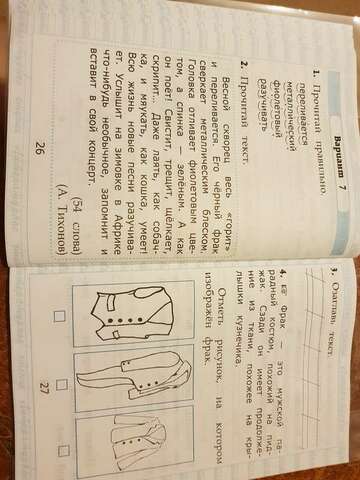 Вариант 7
1. Прочитай правильно.
переливается
металлический
фиолетовый
разучивать
2. Прочитай текст.
Весной скворец весь «горит»
и переливается. Его чёрный фрак
сверкает металлическим блеском.
Головка отливает фиолетовым цве-
том, а спинка — зелёным. А как
он поёт! Свистит, трещит, щёлкает,
скрипит. Даже лаять, как собач-
ка, и мяукать, как кошка, умеет!
Всю жизнь новые песни разучива-
ет. Услышит на зимовке в Африке
что-нибудь необычное, запомнит и
вставит в свой концерт.
(54 слова)
(А. Тихонов)
26
3. Озаглавь текст.
4. Фрак — это мужской па-
радный костюм, похожий на пид-
жак. Сзади он имеет продолже-
ние из ткани, похожее на кры-
лышки кузнечика.
Отметь рисунок, на котором
изображён фрак.
27